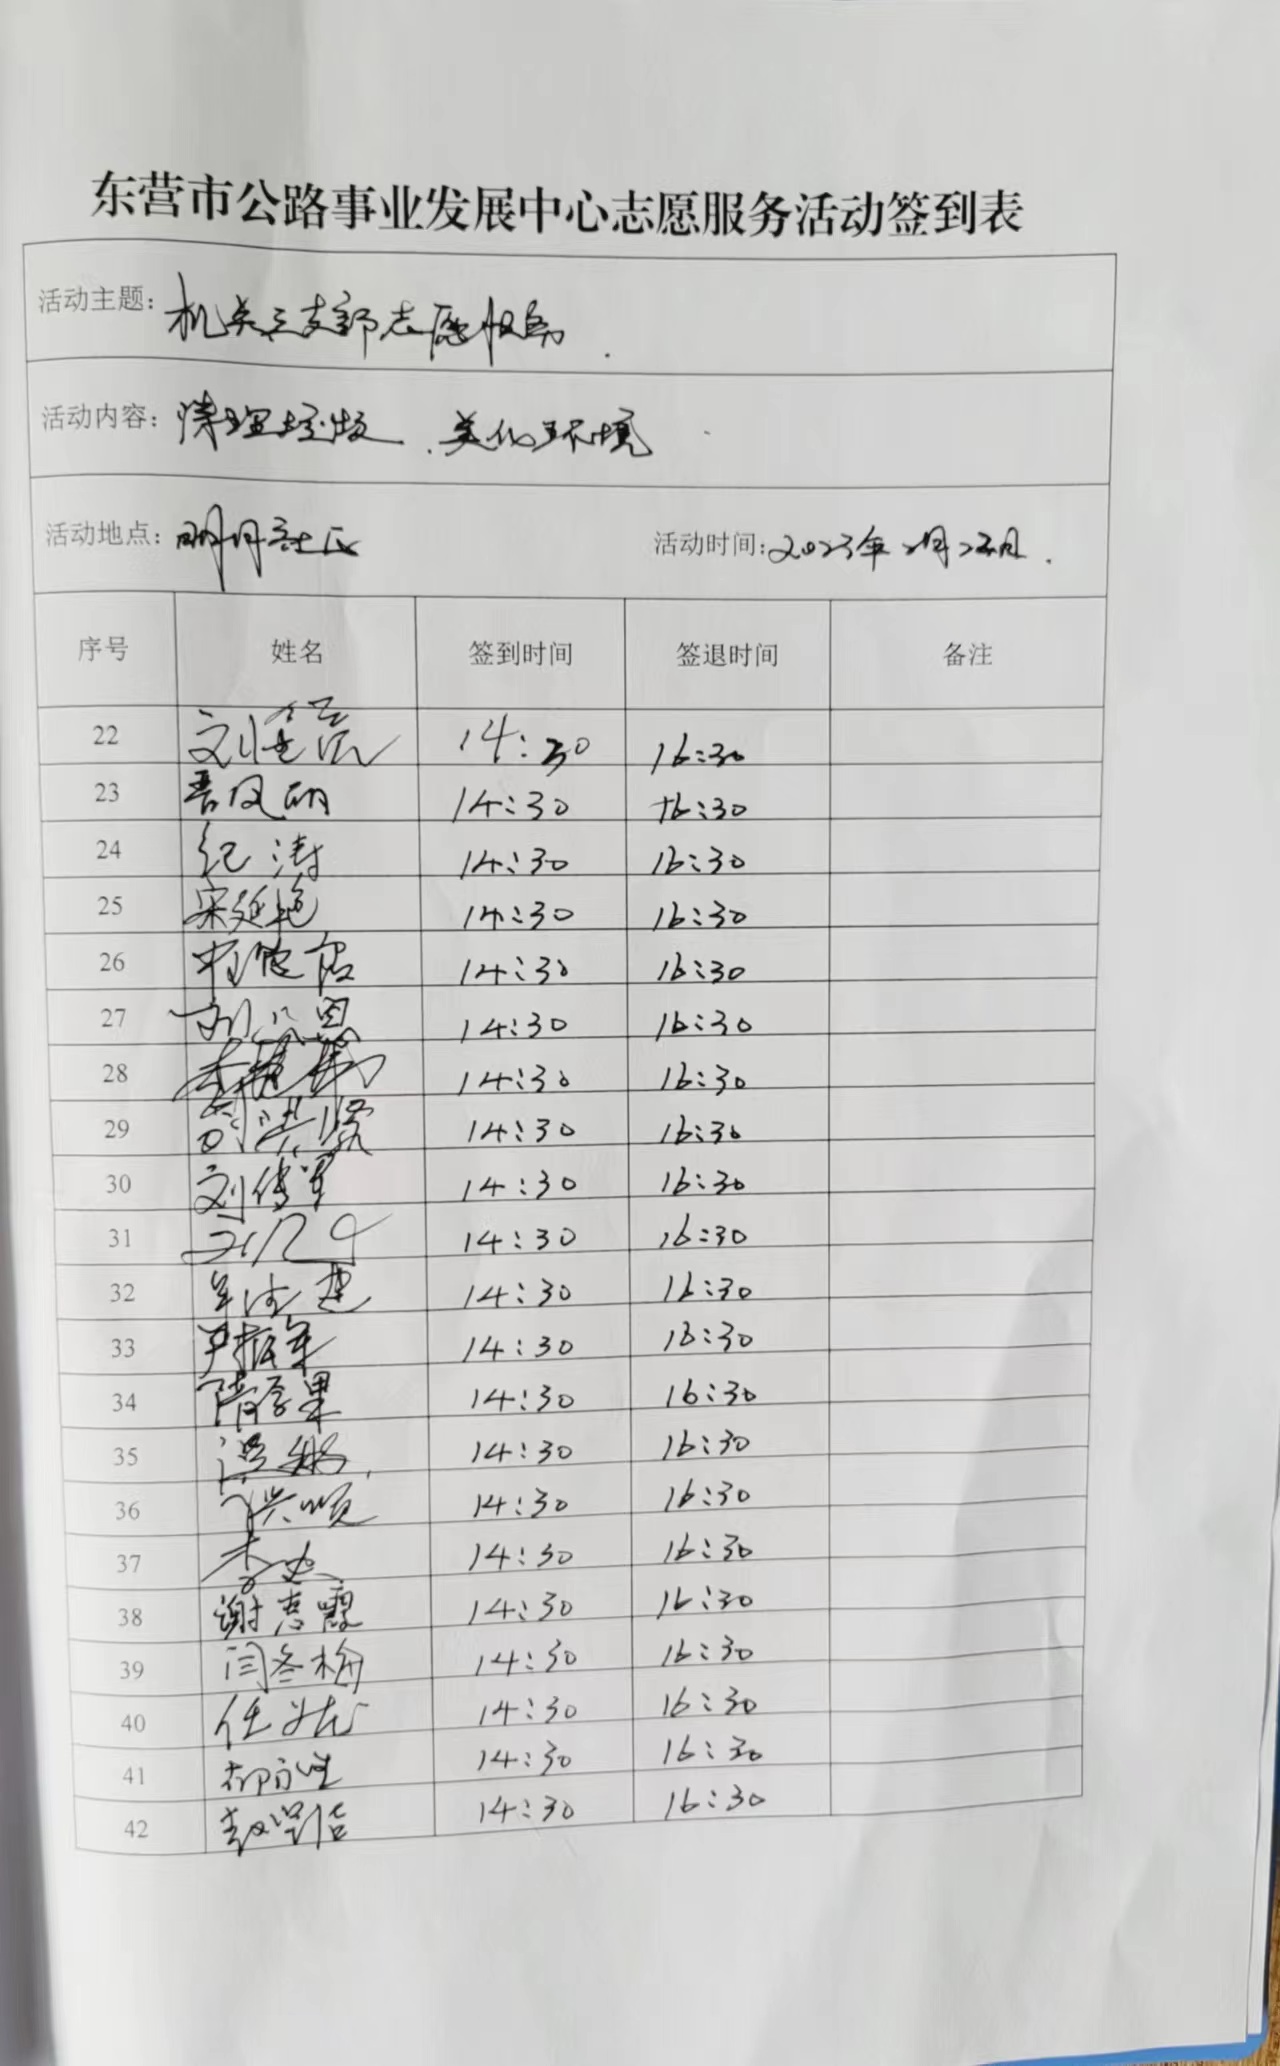 东营市公路事业发展中心志愿服务活动签到表
活动主题：机关三支部志愿服务
活动内容：清理垃圾、美化环境
活动地点：明月社区 活动时间：2023年 月 日
序号 姓名 签到时间 签退时间 备注
22 14:30 16:30
23 14:30 16:30
24 纪涛 14:30 16:30
25 宋延艳 14:30 16:30
26 14:30 16:30
27 14:30 16:30
28 14:30 16:30
29 14:30 16:30
30 刘传军 14:30 16:30
31 14:30 16:30
32 14:30 16:30
33 尹振军 14:30 16:30
34 隋学果 14:30 16:30
35 14:30 16:30
36 14:30 16:30
37 14:30 16:30
38 谢志霞 14:30 16:30
39 闫冬梅 14:30 16:30
40 14:30 16:30
41 14:30 16:30
42 14:30 16:30